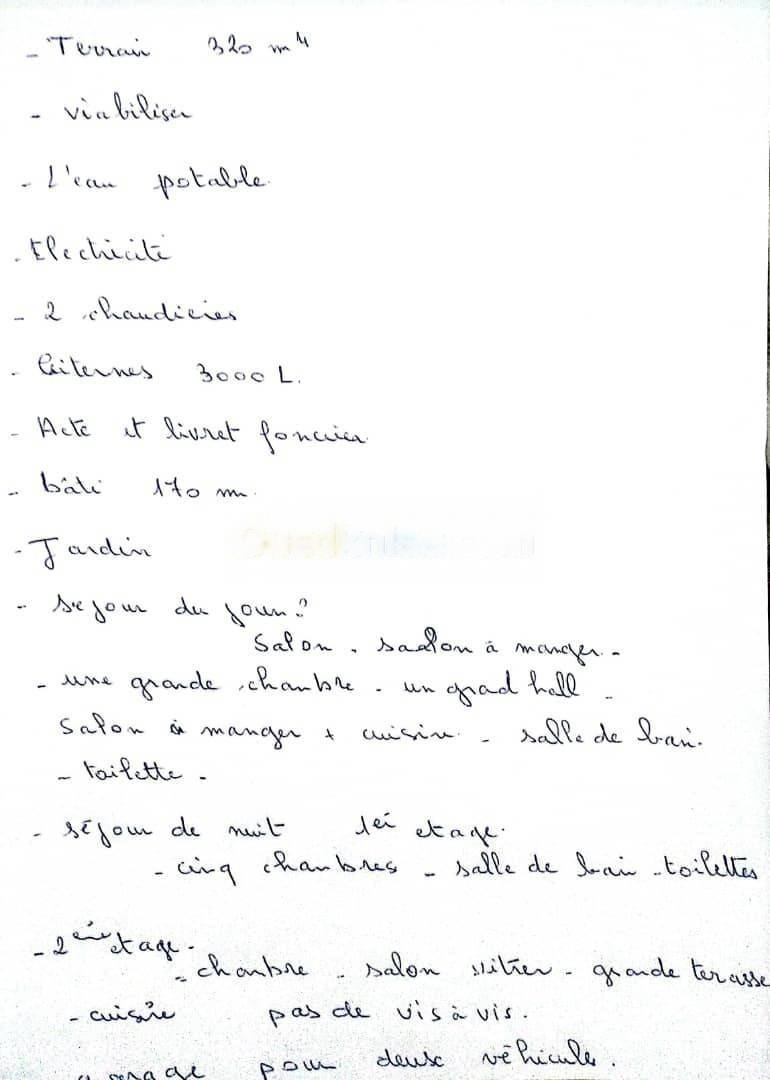 - Terrain 320 m⁴
- viabiliser
- L'eau potable.
- Electricité
- 2 chaudières
- Citernes 3000 L.
- Acte et livret foncier
- bâti 170 m.
- Jardin
- séjour du jour:
Salon. saalon à manger.-
- une grande chambre. un grad hall -
Salon à manger + cuisin. - salle de bain.
- toilette.
- séjour de nuit 1er etage.
- cinq chambres - salle de bain - toilettes
- 2ème etage.
- chambre - salon vitrer - grande terasse
- cuisie pas de vis à vis.
garage pour deuse véhicule.